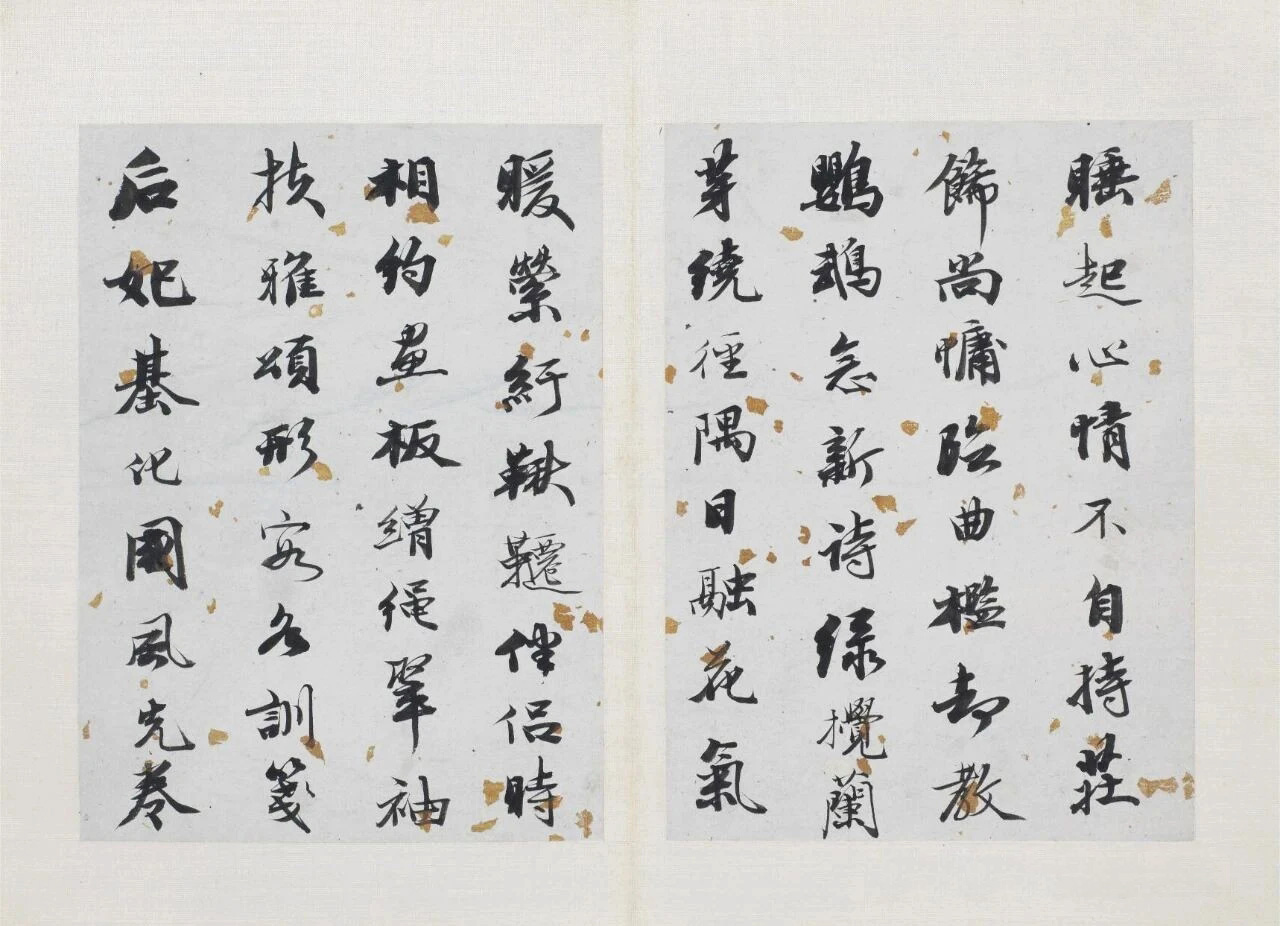 睡起心情不自持莊
飾尚慵臨曲檻却教
鸚鵡念新詩綠攪蘭
芽繞徑隅日融花氣
暖縈紆鞦韆伴侶時
相約畫板繒繩翠袖
扶雅頌形容各訓箋
后妃基化國風先奏